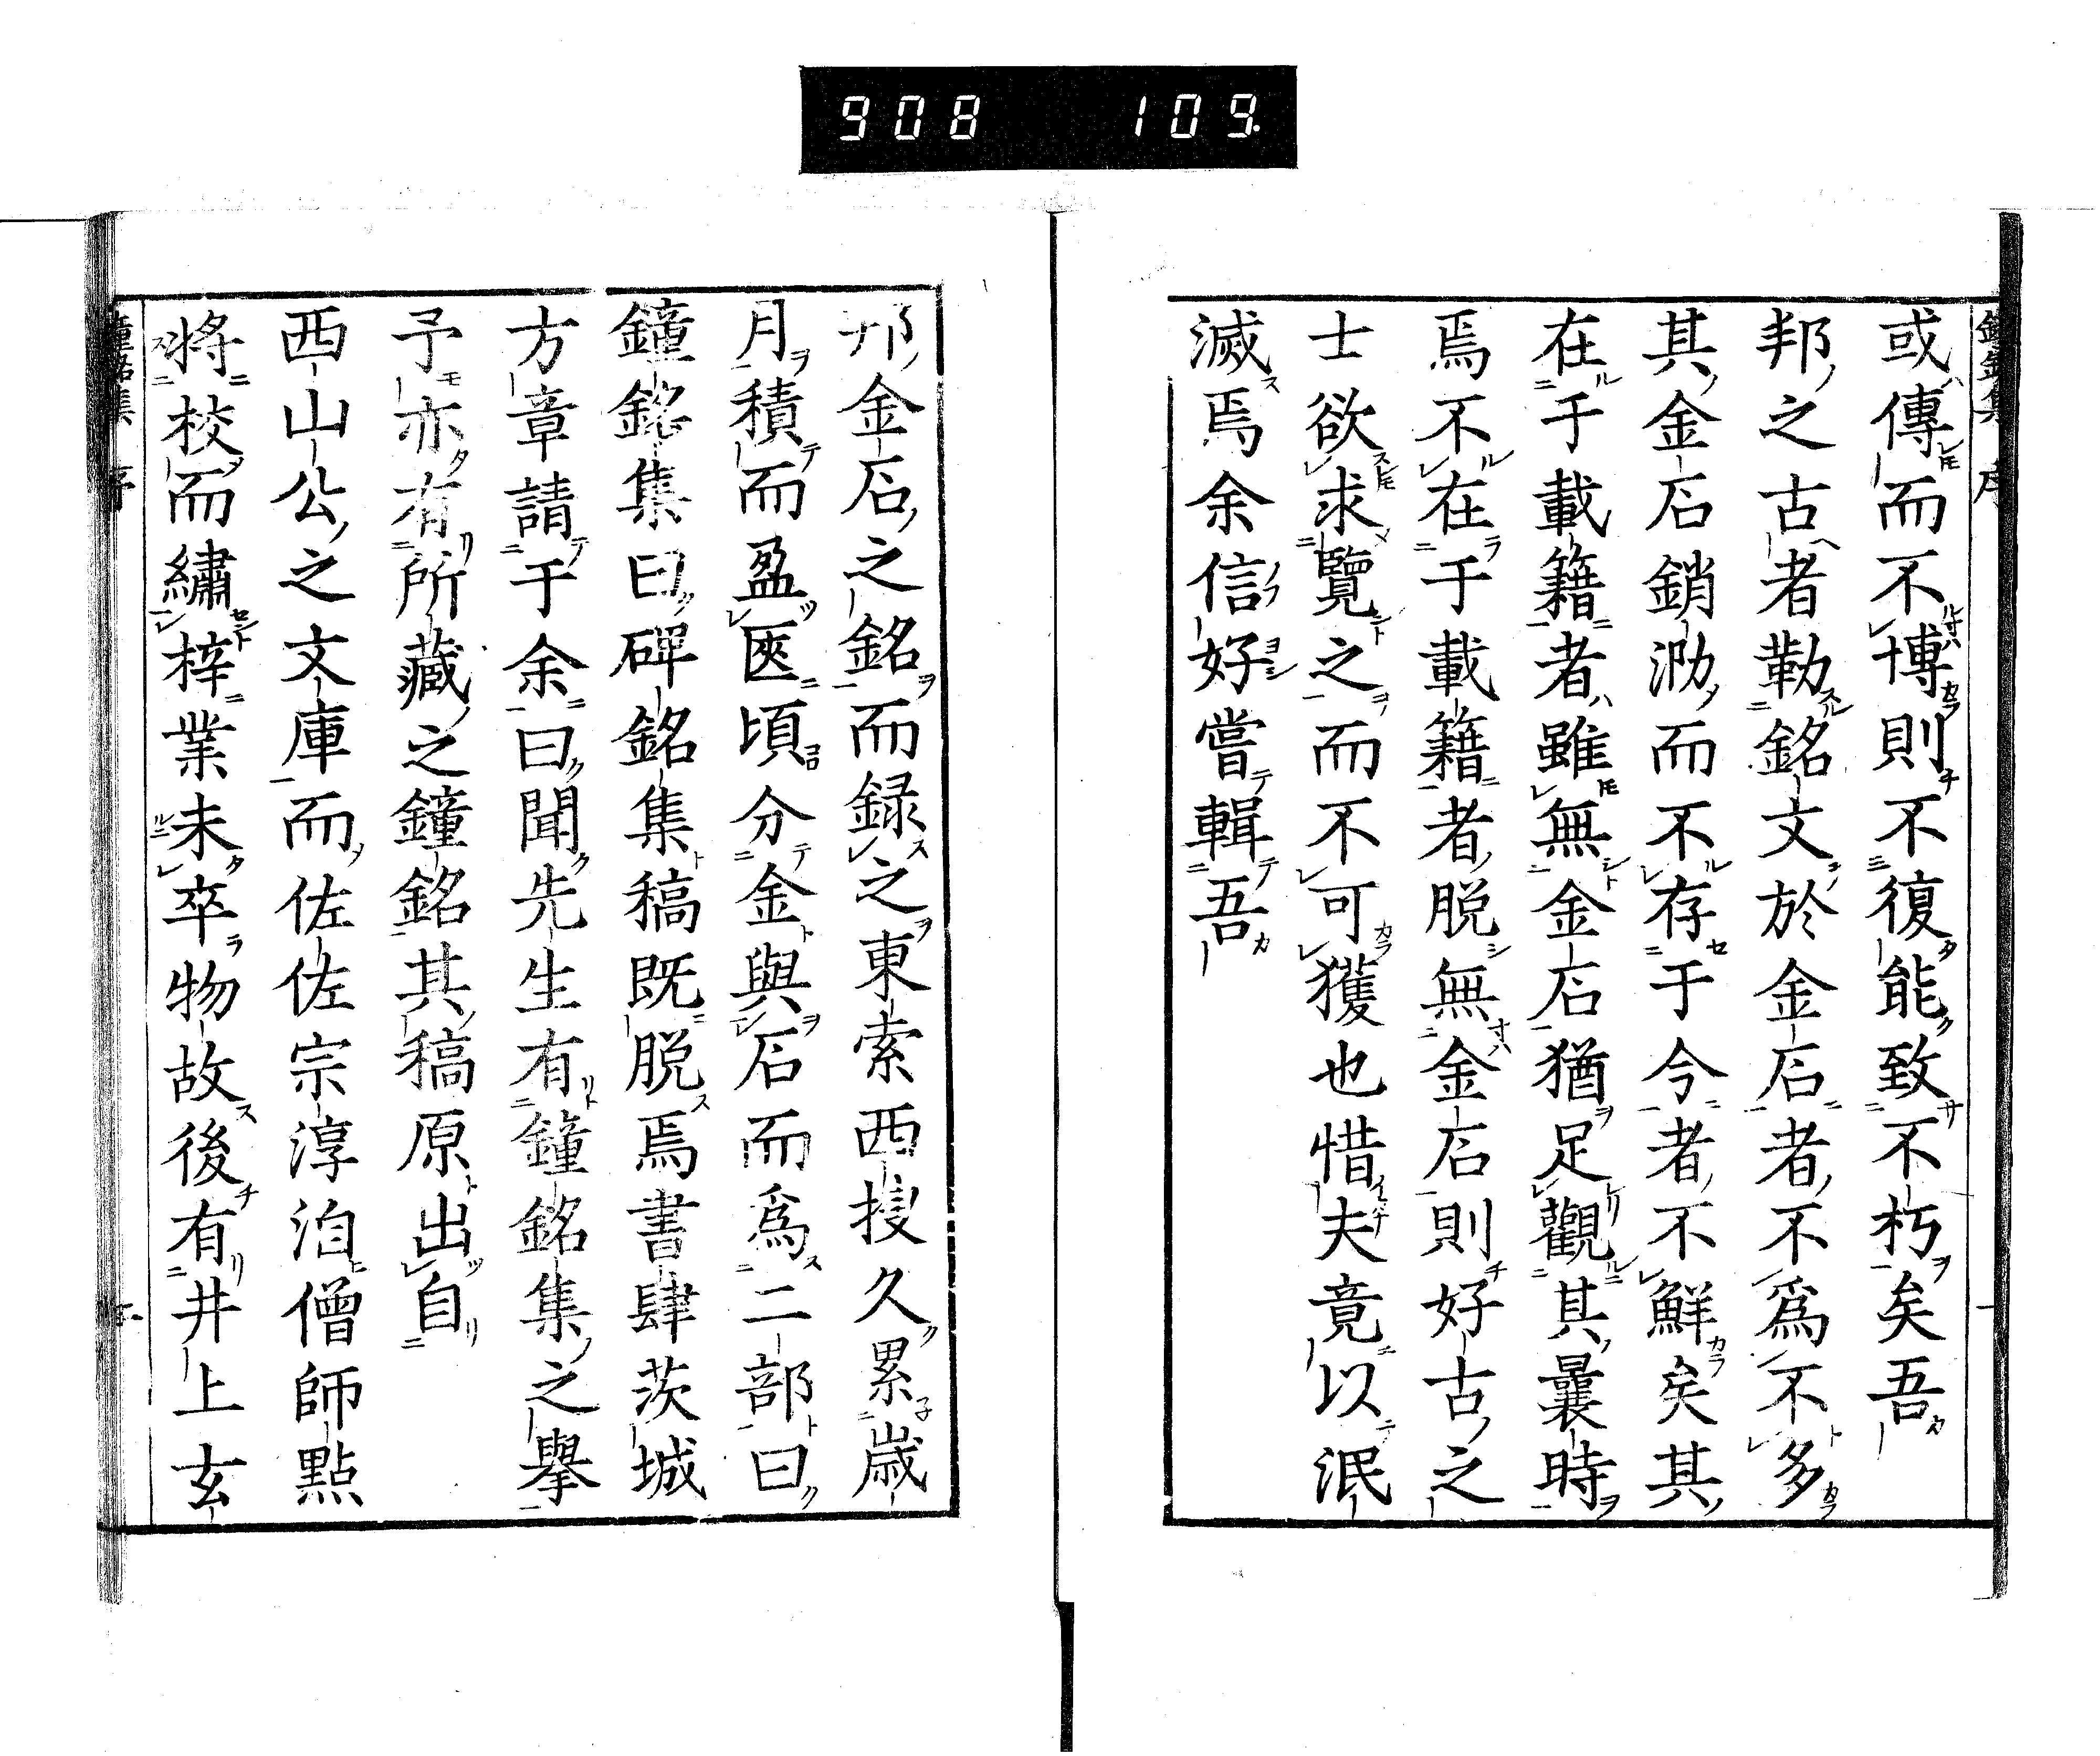 908 109
鐘銘集 序
或傳而不博則不復能致不朽矣吾
邦之古者勒銘文於金石者不爲不多
其金石銷泐而不存于今者不鮮矣其
在于載籍者雖無金石猶足觀其曩時
焉不在于載籍者脱無金石則好古之
士欲求覽之而不可獲也惜夫竟以泯
滅焉余信好嘗輯吾
邦金石之銘而録之東索西搜久累歳
月積而盈匧頃分金與石而爲二部曰
鐘銘集曰碑銘集稿既脱焉書肆茨城
方章請于余曰聞先生有鐘銘集之擧
予亦有所藏之鐘銘其稿原出自
西山公之文庫而佐佐宗淳洎僧師點
將校而繡梓業未卒物故後有井上玄
鐘銘集 序